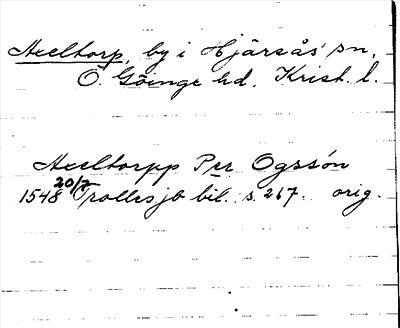 Axeltorp, by i Hjärsås' sn,
Ö. Göinge hd. Krist. l.
Axeltorpp Per Ogssón
1548 20/7 Trollesjb bil. s. 267. orig.